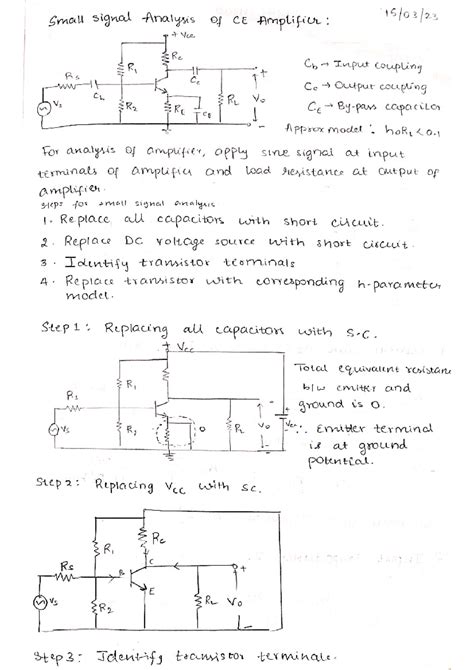 Small signal Analysis of CE Amplifier:
15/03/23
+ Vcc
R1
Rc
Cc
Rs
Cb
Vs
R2
RE
CE
RL
Vo
+
-
Cb → Input coupling
Co → Output coupling
CE → By-pass capacitor
Approx model: hoRL < 0.1
For analysis of amplifier, apply sine signal at input
terminals of amplifier and load resistance at output of
amplifier.
steps for small signal analysis
1. Replace all capacitors with short circuit.
2. Replace DC voltage source with short circuit.
3. Identify transistor terminals
4. Replace transistor with corresponding h-parameter
model.
Step 1: Replacing all capacitors with S.C.
+ Vcc
R1
Rs
Vs
R2
0
RL
Vo
Vcc
-
Total equivalent resistance
b/w emitter and
ground is 0.
∴ Emitter terminal
is at ground
potential.
Step 2: Replacing Vcc with sc.
R1
Rc
Rs
B
C
E
Vs
R2
RL
Vo
+
-
Step 3: Identify transistor terminals.